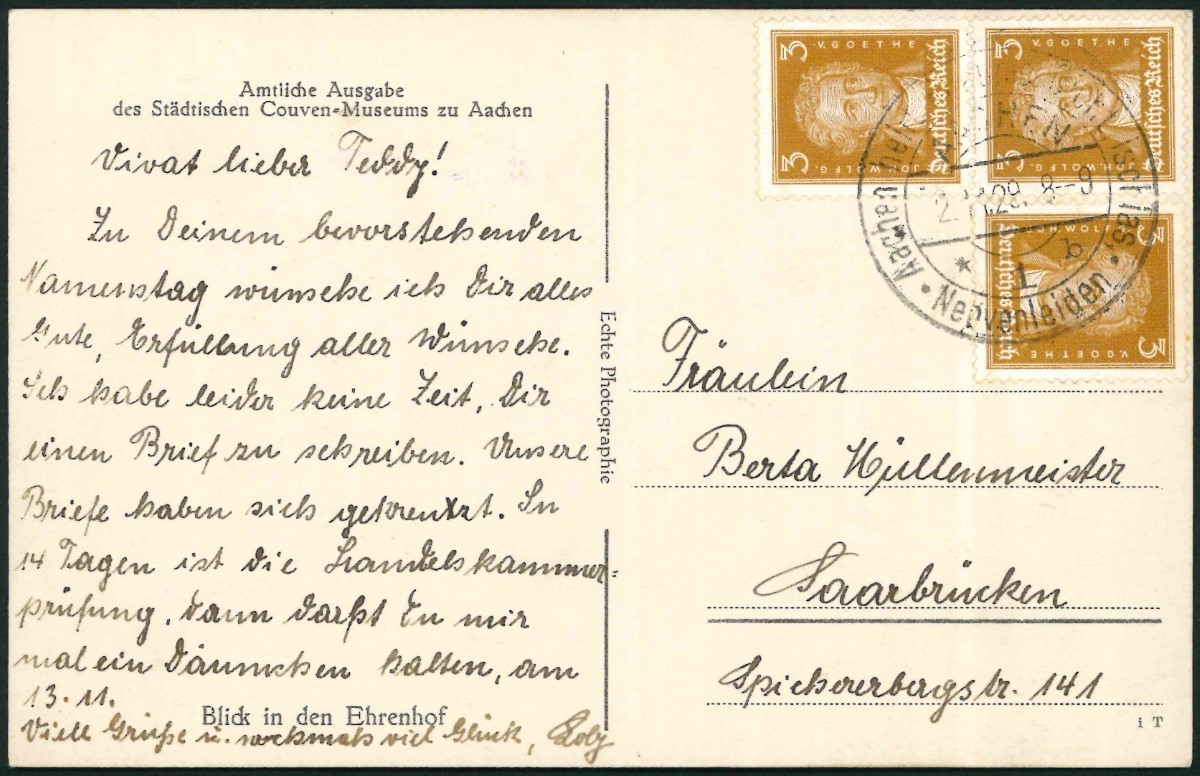 Amtliche Ausgabe
des Städtischen Couven-Museums zu Aachen
Vivat lieber Teddy!
Zu Deinem bevorstehenden
Namenstag wünsche ich Dir alles
Gute, Erfüllung aller Wünsche.
Ich habe leider keine Zeit, Dir
einen Brief zu schreiben. Unsere
Briefe haben sich gekreutzt. In
14 Tagen ist die Handelskammer-
prüfung, dann darfst Du mir
mal ein Däumchen halten, am
13.11.
Blick in den Ehrenhof
Viele Grüße u. nochmals viel Glück,
Echte Photographie
3 V. GOETHE 3
JOH. WOLFG.
Deutsches Reich
3 V. GOETHE 3
JOH. WOLFG.
Deutsches Reich
3 V. GOETHE 3
JOH. WOLFG.
Deutsches Reich
AACHEN
28. 8-9
* 1 b
Aachen heilt
Nervenleiden
Fräulein
Berta Hüllenmeister
Saarbrücken
Spichererbergstr. 141
i T